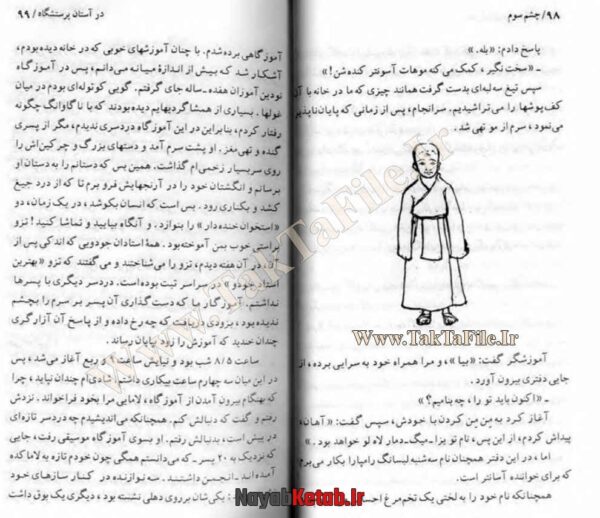 ۹۸/ چشم سوم
پاسخ دادم: «بله.»
ـ «سخت نگیر، کمک می‌کنه موهات آسونتر کنده شن!»
سپس تیغ سه‌لبه‌ای بدست گرفت همانند چیزی که ما در خانه با آن
کف‌پوشها را می‌تراشیدیم. سرانجام، پس از زمانی که پایان‌ناپذیر
می‌نمود، سرم از مو تهی شد.
www.TakTaFile.Ir
آموزشگر گفت: «بیا»، و مرا همراه خود به سرایی برده، از
جایی دفتری بیرون آورد.
ـ «اکنون باید تو را، چه بنامیم؟»
آغاز کرد به مِن مِن کردن با خودش، سپس گفت: «آهان،
پیداش کردم، از این پس، نام تو یزا ـ میگ ـ دمار لاه لو خواهد بود.»
اما، در این دفتر همچنان نام سه‌شنبه لبسانگ رامپا را بکار می‌برم
که برای خواننده آسانتر است.
همچنانکه نام خود را به لختی یک تخم مرغ احس
در آستان پرستشگاه / ۹۹
آموزگاهی برده شدم. با چنان آموزشهای خوبی که در خانه دیده بودم،
آشکار شد که بیش از اندازهٔ میانه می‌دانم، پس در آموزگاه
نودین آموزان هفده ـ ساله جای گرفتم. گویی کوتوله‌ای بودم در میان
غولها. بسیاری از همشاگردیهایم دیده بودند که با ناگاوانگ چگونه
رفتار کردم، بنابراین در این آموزگاه دردسری ندیدم، مگر از پسری
گنده و تهی‌مغز. او پشت سرم آمد و دستهای بزرگ و چرکین‌اش را
روی سر بسیار زخمی‌ام گذاشت. همین بس که دستانم را به دستان او
برسانم و انگشتان خود را در آرنجهایش فرو برم تا که از درد جیغ
کشد و بکناری رود. بس است که انسان بکوشد، در یک زمان، دو
«استخوان خنده‌دار» را بنوازد، و آنگاه بیایید و تماشا کنید! تزو
براستی خوب بمن آموخته بود. همهٔ استادان جودویی که اندکی پس از
آن، در آن هفته دیدم، تزو را می‌شناختند و می‌گفتند که تزو «بهترین
استاد جودو» در سراسر تبت بوده است. دردسر دیگری با پسرها
نداشتم. آموزگار ما که دست گذاری آن پسر بر سرم را بچشم
ندیده بود، بزودی دریافت که چه رخ داده و از پاسخ آن آزارگری
چندان خندید که آموزش را زود پایان رساند.
ساعت ۸/۵ شب بود و نیایش ساعت ۹ و ربع آغاز می‌شد، پس
در این میان سه چهارم ساعت بیکاری داشتم. شادی‌ام چندان نپایید، چرا
که بهنگام بیرون آمدن از آموزگاه، لامایی مرا بخود فراخواند. نزدش
رفتم و گفت که دنبالش کنم. همچنانکه می‌اندیشیدم چه دردسر تازه‌ای
در پیش است، بدنبالش رفتم. او بسوی آموزگاه موسیقی رفت، جایی
که نزدیک به ۲۰ پسر ـ که می‌دانستم همگی چون خودم تازه به لاما کده
آمده‌اند ـ انجمن داشتند. سه نوازنده در کنار سازهای خود
بودند: یکی‌شان بر روی دهلی نشسته بود، دیگری یک بوق داشت
www.TakTaFile.Ir
NayabKetab.Ir